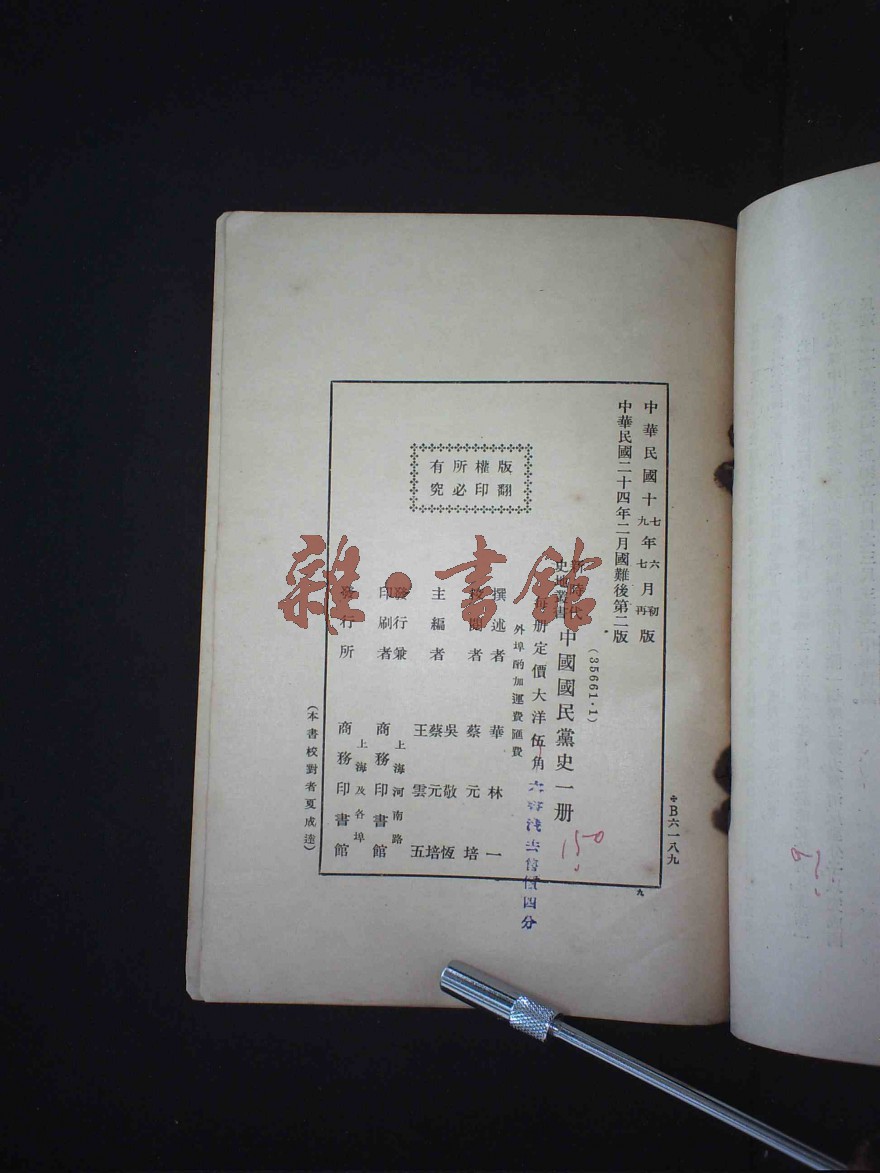 中華民國十七年六月初版
九七再
中華民國二十四年二月國難後第二版
(35661·1)
新時代史地叢書
中國國民黨史一册
每册定價大洋伍角
外埠酌加運費匯費
撰述者 華林一
校閱者 蔡元培
主編者 吳敬恆
蔡元培
王雲五
發行兼印刷者 上海河南路
商務印書館
發行所 上海及各埠
商務印書館
版權所有
翻印必究
(本書校對者夏成逵)
B六一八九
九
售價四分
150
雜·書館